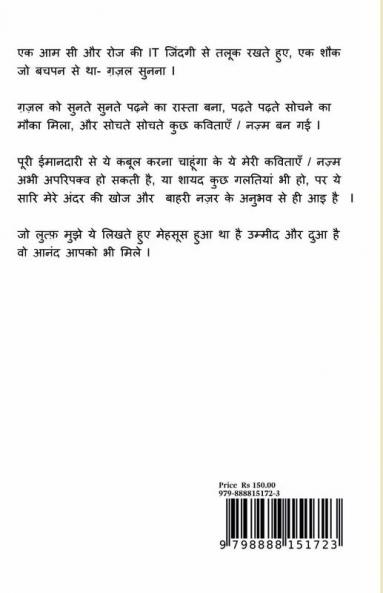 एक आम सी और रोज की IT जिंदगी से तलूक रखते हुए, एक शौक
जो बचपन से था- ग़ज़ल सुनना ।
ग़ज़ल को सुनते सुनते पढ़ने का रास्ता बना, पढ़ते पढ़ते सोचने का
मौका मिला, और सोचते सोचते कुछ कविताएँ / नज़्म बन गई ।
पूरी ईमानदारी से ये कबूल करना चाहूंगा के ये मेरी कविताएँ / नज़्म
अभी अपरिपक्व हो सकती है, या शायद कुछ गलतियां भी हो, पर ये
सारि मेरे अंदर की खोज और बाहरी नज़र के अनुभव से ही आइ है ।
जो लुत्फ़ मुझे ये लिखते हुए मेहसूस हुआ था है उम्मीद और दुआ है
वो आनंद आपको भी मिले ।
Price Rs 150.00
979-888815172-3
9 798888 151723